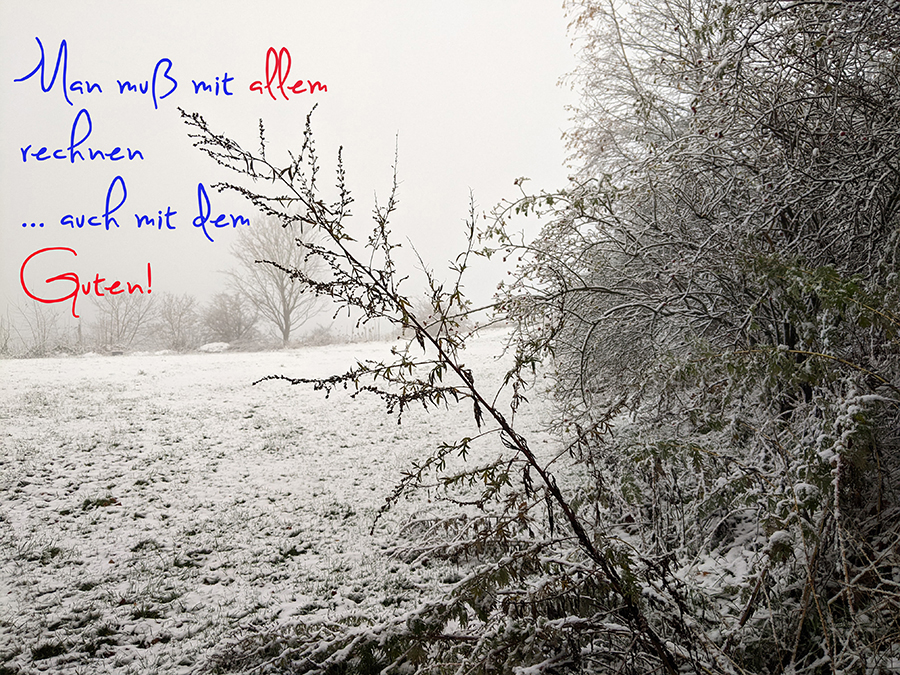 Man muß mit allem
rechnen
... auch mit dem
Guten!